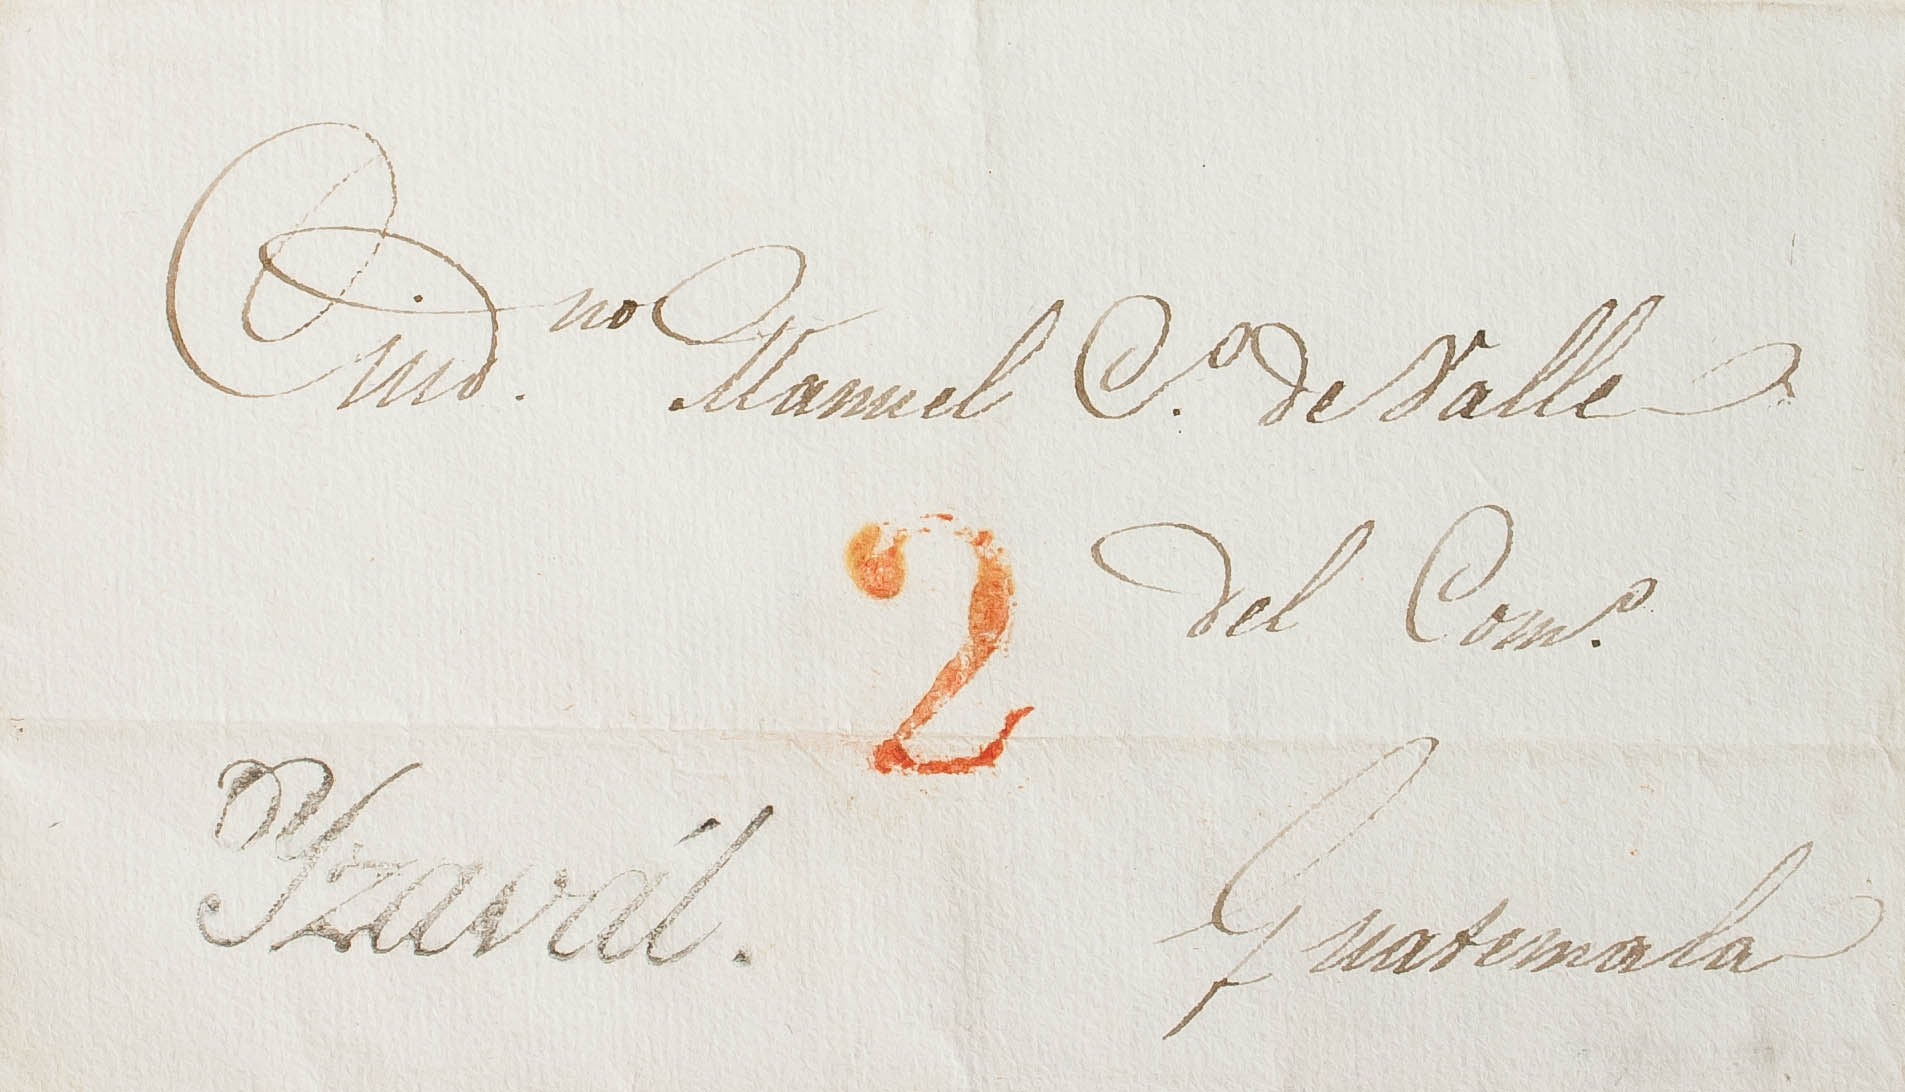 Ciud.no Manuel C.o de Valle
2
del Com.o
Yzavál.
Guatemala